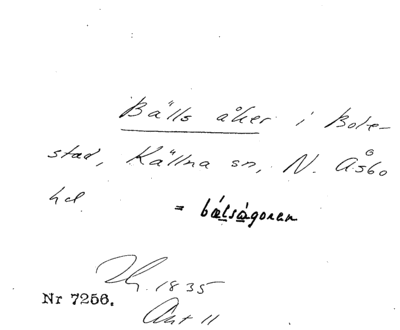 Bälls åker i Bote-
stad, Källna sn, N. Åsbo
hd = bálságoren
1835
Nr 7256.
Akt 11